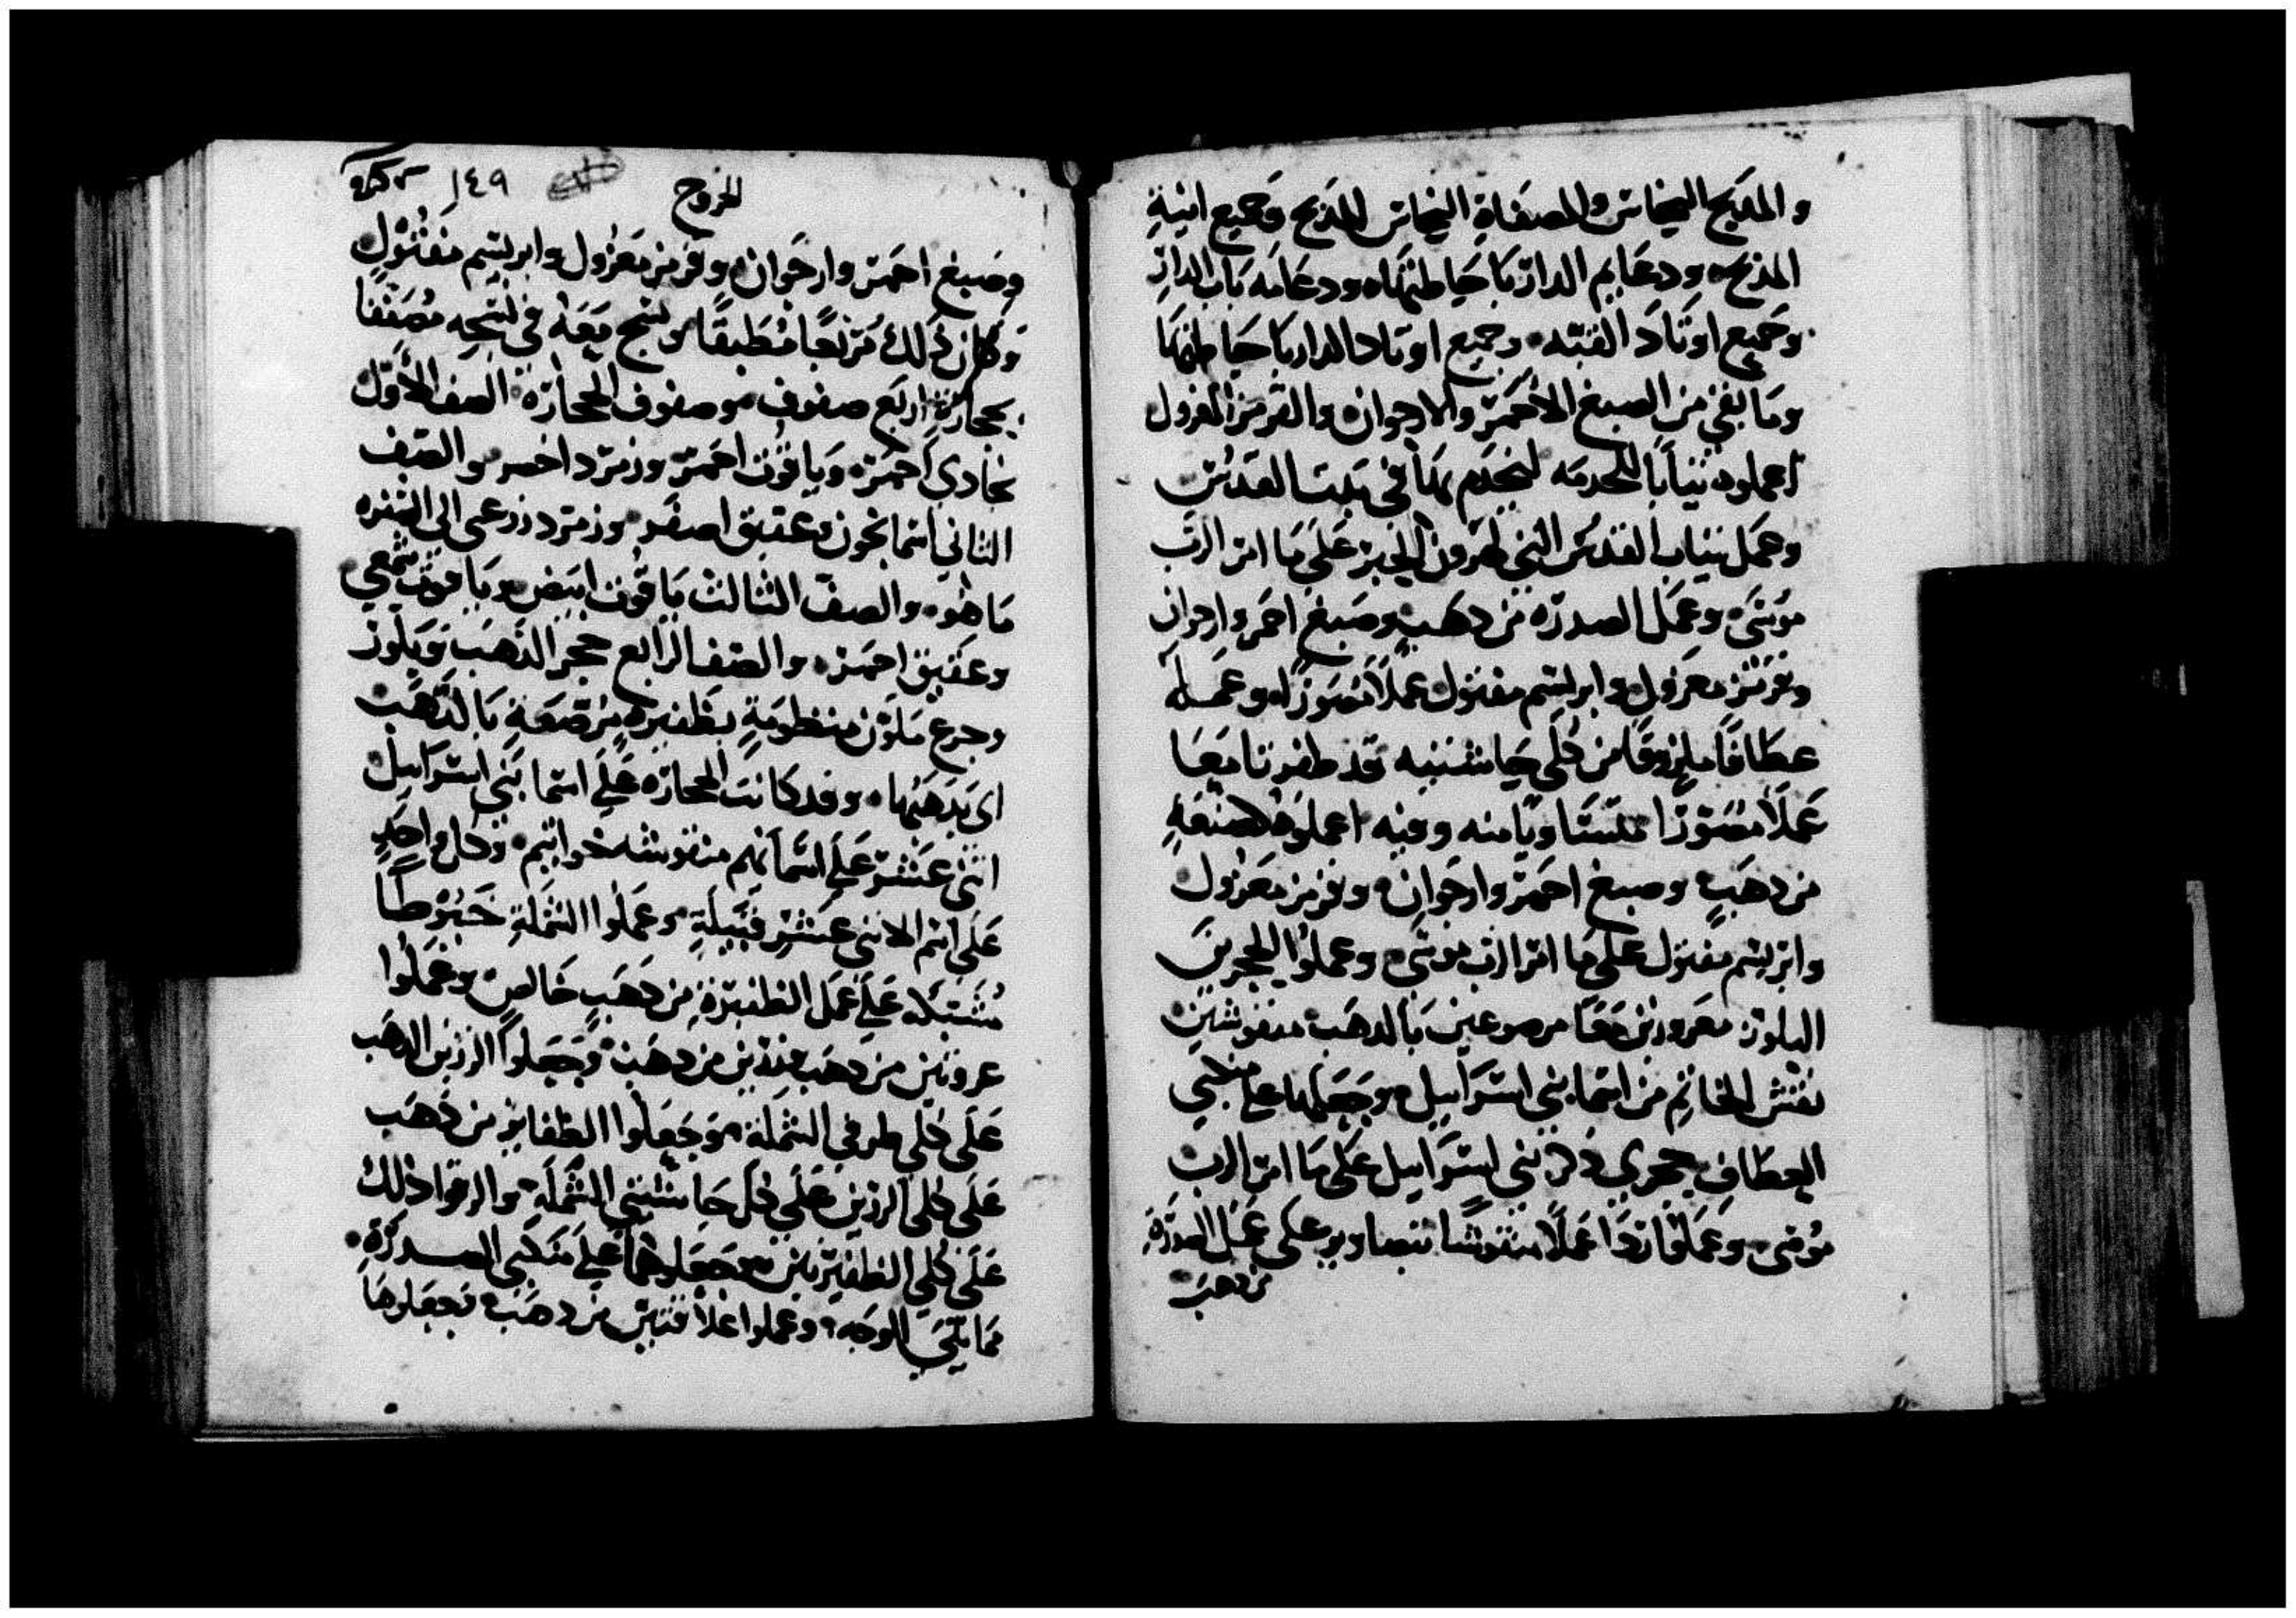 والمذبح النحاس والمصفاة النحاس للمذبح وجميع انية
المذبح ودعايم الدار بما حياطنها ودعامه باب الدار
وجميع اوتاد القبه وجميع اوتاد الدار بما حياطنها
وما بقي من الصبغ الاحمر والارجوان والقرمز المغزول
اعملوه ثيابا للخدمه ليخدم بها في بيت القدس
وعمل ثياب القدس التي لهرون الحبر على ما امر الرب
موسى وعمل الصدره من دهب وصبغ احمر وارجوان
وقرمز مغزول وابريسم مفتول عملا مصورا وعمله
عطافا ملزوقا من كلي حاشيته قد ظفرتا معا
عملا مصورا متساويا منه وفيه اعملوه لصنعه
من دهب وصبغ احمر وارجوان وقرمز مغزول
وابريسم مفتول على ما امر الرب موسى وعملوا الحجرين
البلور معرورين معا مرصوعين بالدهب منقوشين
نقش الخاتم من اسما بني اسراييل وجعلهما على منكبي
العطاف حجري ذكر بني اسراييل على ما امر الرب
موسى وعملوا عملا منقوشا تصاوير على عمل الصدره
من دهب
الخروج
١٤٩
وصبغ احمر وارجوان وقرمز مغزول وابريسم مفتول
وكان ذلك مربعا مطبقا ونسج معه في نسجه مصففا
بحجاره اربع صفوف موصفوف الحجاره الصف الاول
بجادي احمر وياقوت احمر وزمرد اخضر والصف
الثاني اسمانجون وعقيق اصفر وزمرد زرعي الى الشقره
ما هو والصف الثالث ياقوت ابيض وياقوت شمعي
وعقيق احمر والصف الرابع حجر الدهب وبلور
وجرع ملون منظومة بظفيره مرصعة بالدهب
اي بدهبها وقد كانت الحجاره على اسما بني اسراييل
اثني عشر على اسمآئهم منقوشه خواتيم وكل واحد
على اسم الاثني عشر قبيلة وعملوا الشملة خيوطا
مشتبكه على عمل الظفيرة من دهب خالص وعملوا
عروتين من دهب وزرين من دهب وجعلوا الزرين الدهب
على كلي طرفي الشملة وجعلوا الظفاير من دهب
على كلي الزرين على كل حاشيتي الشملة والزقوا ذلك
على كلي الظفيرتين وجعلوهما على منكبي الصدره
مما يلي الوجه وعملوا غلاقتين من دهب فجعلوها